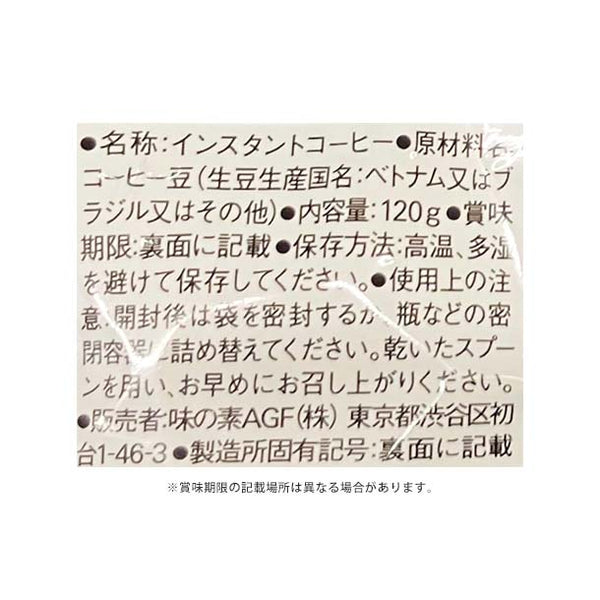 ●名称:インスタントコーヒー●原材料名:
コーヒー豆(生豆生産国名:ベトナム又はブ
ラジル又はその他)●内容量:120g●賞味
期限:裏面に記載●保存方法:高温、多湿
を避けて保存してください。●使用上の注
意:開封後は袋を密封するか、瓶などの密
閉容器に詰め替えてください。乾いたスプー
ンを用い、お早めにお召し上がりください。
●販売者:味の素AGF(株) 東京都渋谷区初
台1-46-3●製造所固有記号:裏面に記載
※賞味期限の記載場所は異なる場合があります。